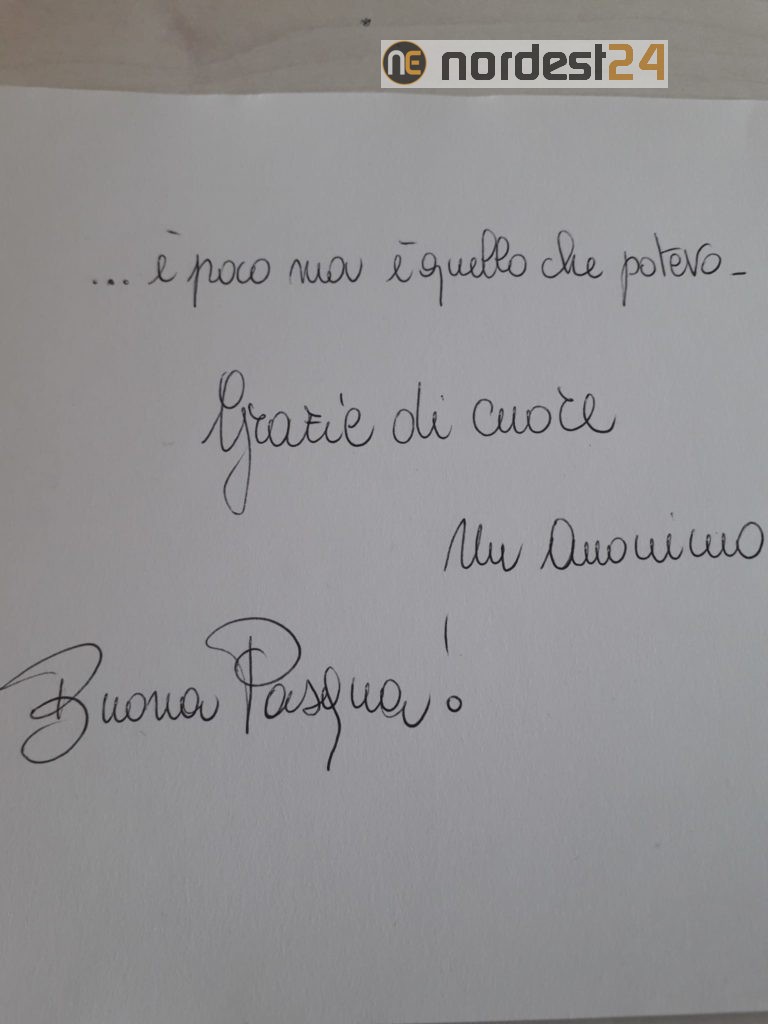 NE nordest24
... è poco ma è quello che potevo -
Grazie di cuore
Un Anonimo
Buona Pasqua!